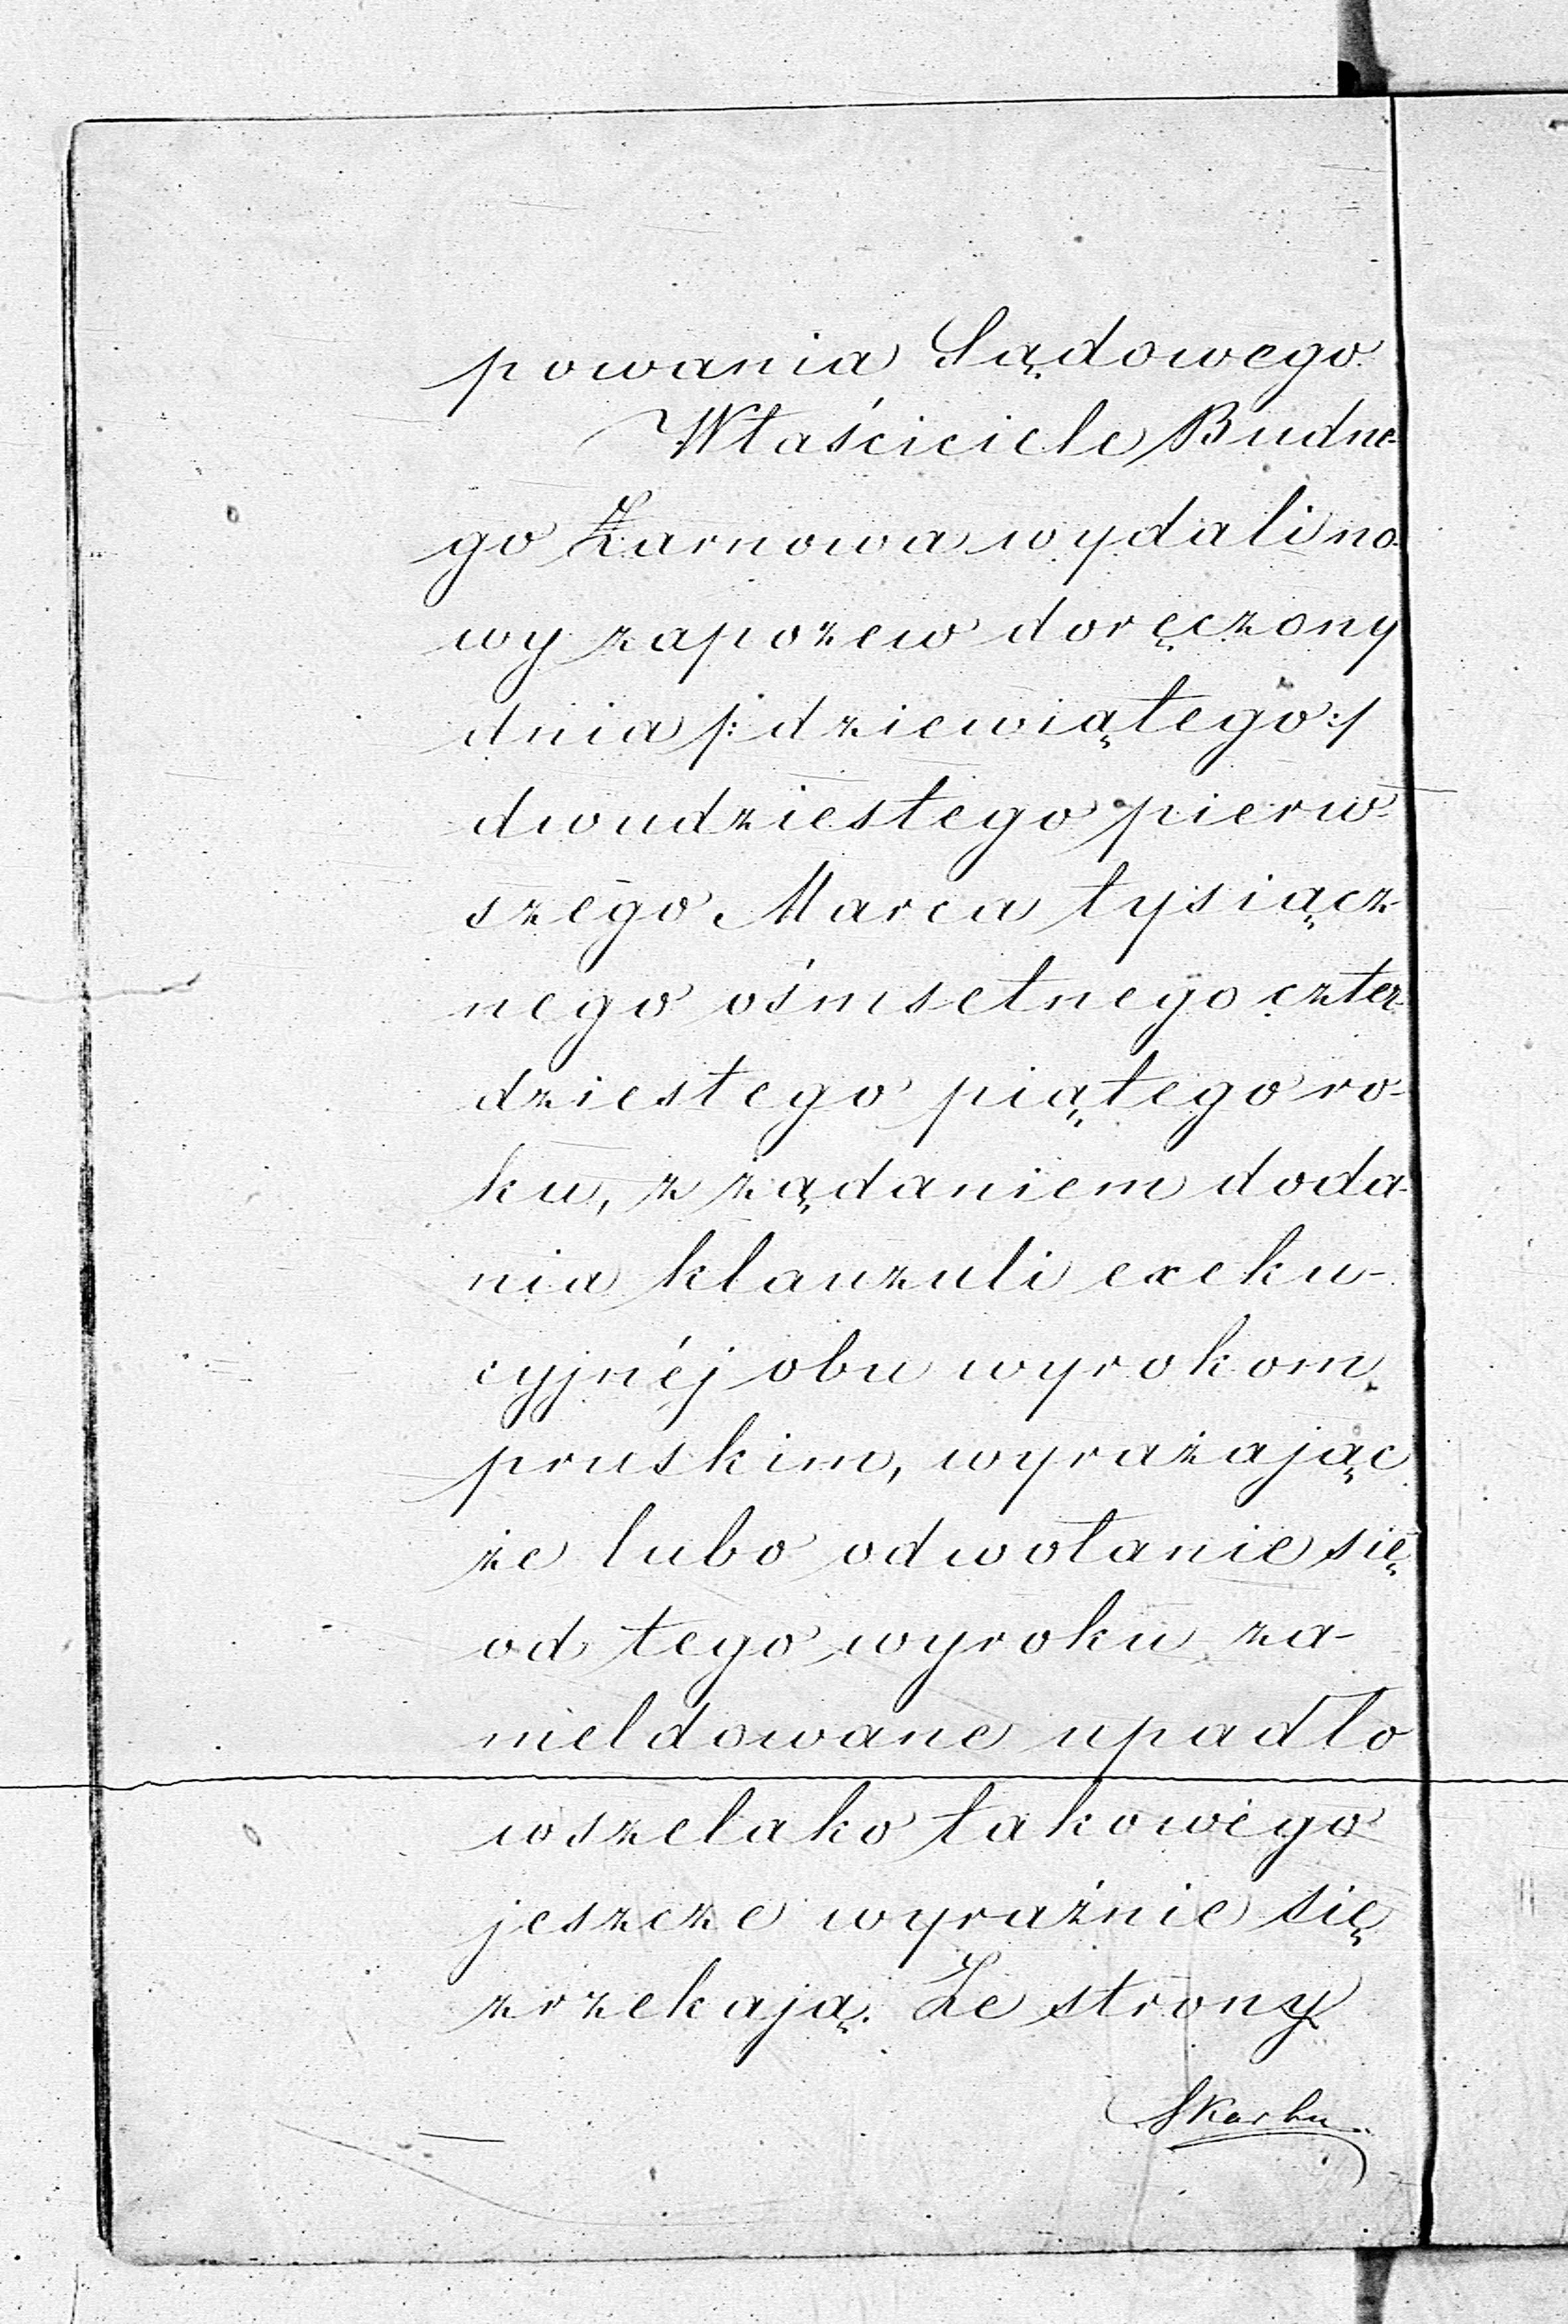 powania Sądowego.
Właściciele Budne-
go Żarnowa wydali no-
wy zapozew doręczony
dnia /: dziewiątego :/
dwudziestego pierw-
szego Marca tysiącz-
nego ośmsetnego czter-
dziestego piątego ro-
ku, z żądaniem doda-
nia klauzuli exeku-
cyjnéj obu wyrokom
pruskim, wyrażając
że lubo odwołanie się
od tego wyroku za-
meldowane upadło
wszelako takowego
jeszcze wyraźnie się
zrzekają. Ze strony
Skarbu